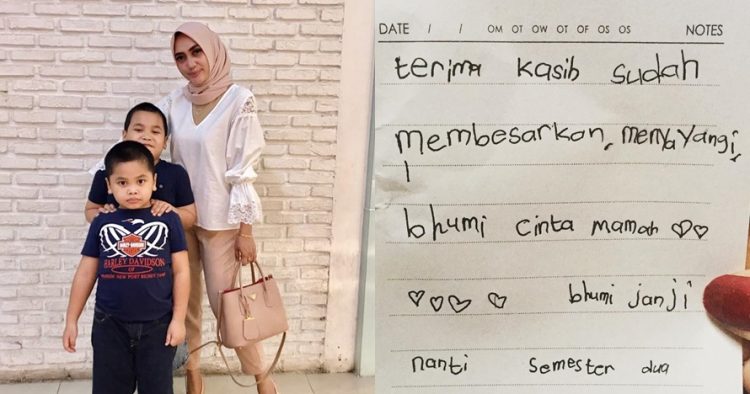 HARLEY-DAVIDSON
OF
DATE / / OM OT OW OT OF OS OS NOTES
terima kasib sudah
membesarkan, menyayangi,
bhumi cinta mamah ♡♡
♡♡♡ ♡ bhumi janji
nanti semester dua